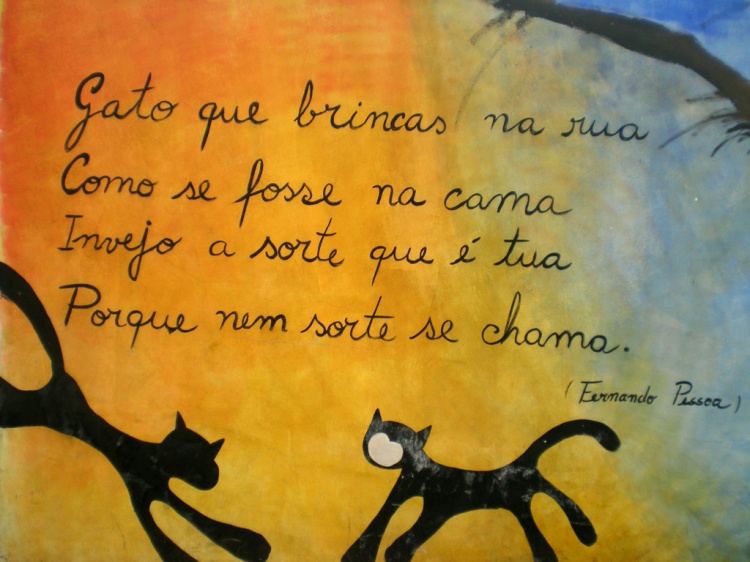 Gato que brincas na rua
Como se fosse na cama
Invejo a sorte que é tua
Porque nem sorte se chama.
(Fernando Pessoa)